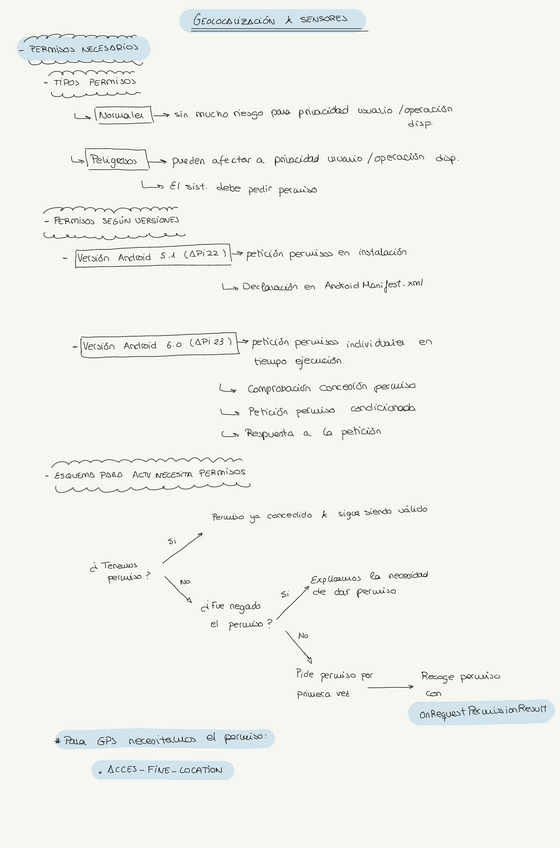 GEOLOCALIZACIÓN & SENSORES
- PERMISOS NECESARIOS
- TIPOS PERMISOS
Normales → sin mucho riesgo para privacidad usuario / operación
disp.
Peligrosos → pueden afectar a privacidad usuario / operación disp.
El sist. debe pedir permiso
- PERMISOS SEGÚN VERSIONES
- Versión Android 5.1 (APi 22) → petición permisos en instalación
Declaración en Android Manifest.xml
- Versión Android 6.0 (APi 23) → petición permisos individuales en
tiempo ejecución.
Comprobación concesión permiso
Petición permiso condicionada
Respuesta a la petición
- ESQUEMA PARA ACTV NECESITA PERMISOS
Permiso ya concedido & sigue siendo válido
Si
¿Tenemos
permiso?
No
¿Fue negado
el permiso?
Si
Explicamos la necesidad
de dar permiso
No
Pide permiso por
primera vez
Recoge permiso
con
onRequestPermissionResult
* Para GPS necesitamos el permiso:
. ACCES_FINE_LOCATION